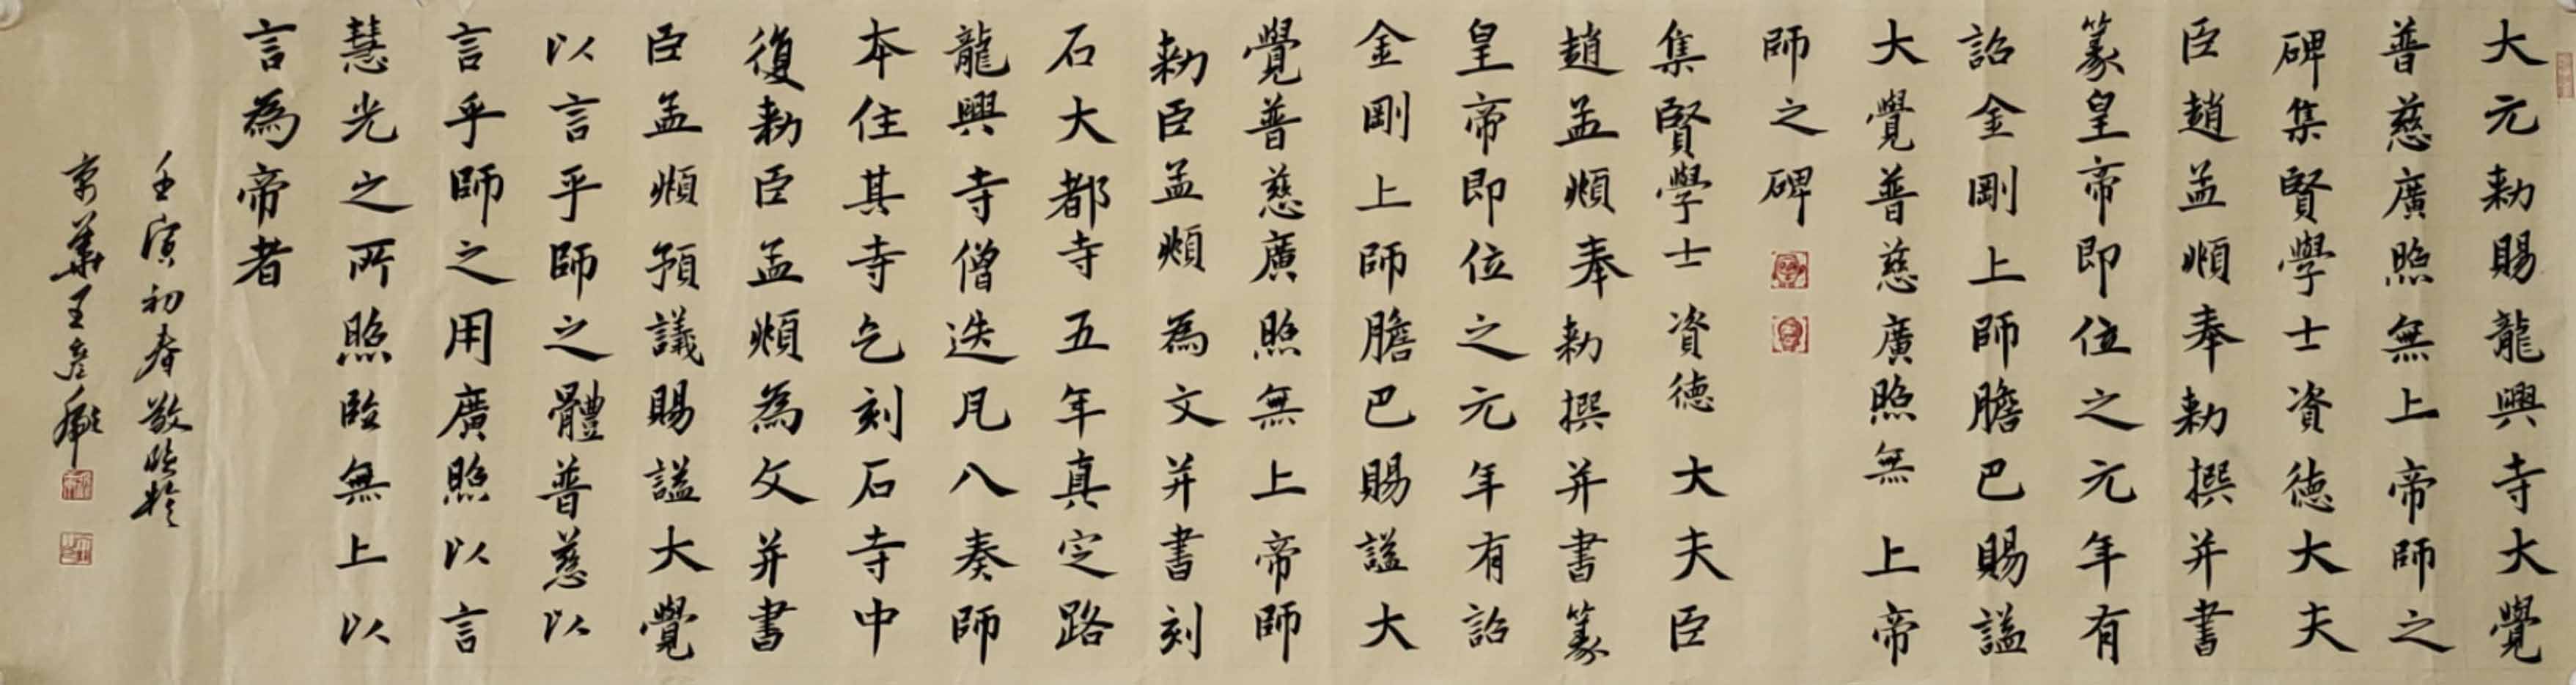 大元勅賜龍興寺大覺
普慈廣照無上帝師之
碑集賢學士資德大夫
臣趙孟頫奉勅撰并書
篆皇帝即位之元年有
詔金剛上師膽巴賜諡
大覺普慈廣照無上帝
師之碑
集賢學士資德大夫臣
趙孟頫奉勅撰并書篆
皇帝即位之元年有詔
金剛上師膽巴賜諡大
覺普慈廣照無上帝師
勅臣孟頫為文并書刻
石大都寺五年真定路
龍興寺僧迭凡八奏師
本住其寺乞刻石寺中
復勅臣孟頫為文并書
臣孟頫預議賜諡大覺
以言乎師之體普慈以
言乎師之用廣照以言
慧光之所照臨無上以
言為帝者
壬寅初春敬臨於
京華王彥